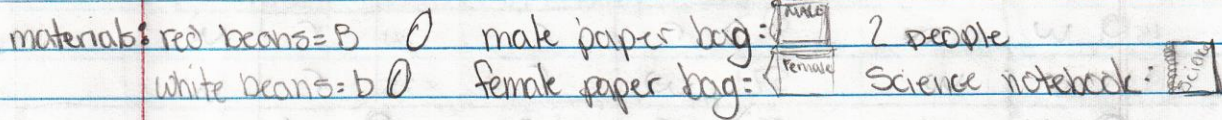 materials: red beans = B male paper bag: Male 2 people
white beans = b female paper bag = Female Science notebook: